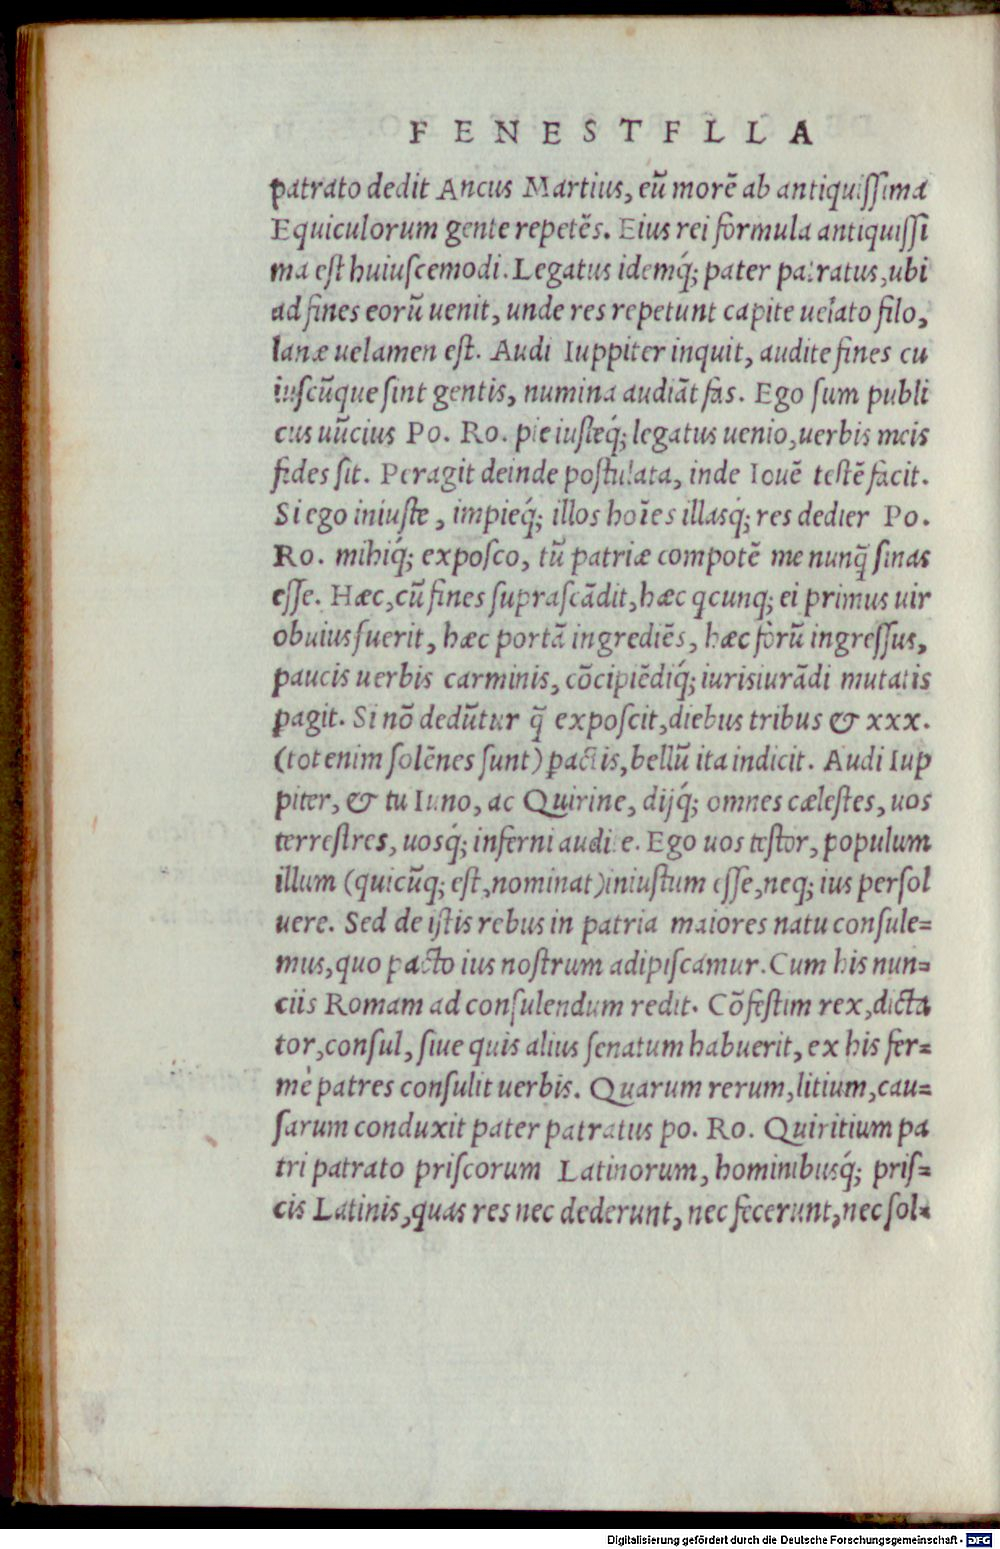 FENESTFLLA
patrato dedit Ancus Martius, eũ morẽ ab antiquissima
Equiculorum gente repetẽs. Eius rei formula antiquissi
ma est huiuscemodi. Legatus idemq́; pater patratus, ubi
ad fines eorũ uenit, unde res repetunt capite uelato filo,
lanæ uelamen est. Audi Iuppiter inquit, audite fines cu
iuscũque sint gentis, numina audiãt fas. Ego sum publi
cus nũcius Po. Ro. pie iusteq́; legatus uenio, uerbis meis
fides sit. Peragit deinde postulata, inde Iouẽ testẽ facit.
Si ego iniuste, impieq́; illos hoĩes illasq́; res dedier Po.
Ro. mihiq́; exposco, tũ patriæ compotẽ me nunq̃ sinas
esse. Hæc, cũ fines suprascãdit, hæc qcunq; ei primus uir
obuius fuerit, hæc portã ingrediẽs, hæc forũ ingressus,
paucis uerbis carminis, cõcipiẽdiq́; iurisiurãdi mutatis
pagit. Si nõ dedũtur q̃ exposcit, diebus tribus & xxx.
(tot enim solẽnes sunt) pactis, bellũ ita indicit. Audi Iup
piter, & tu Iuno, ac Quirine, dijq́; omnes cælestes, uos
terrestres, uosq́; inferni audite. Ego uos testor, populum
illum (quicũq; est, nominat) iniustum esse, neq; ius persol
uere. Sed de istis rebus in patria maiores natu consule=
mus, quo pacto ius nostrum adipiscamur. Cum his nun=
ciis Romam ad consulendum redit. Cõfestim rex, dicta
tor, consul, siue quis alius senatum habuerit, ex his fer=
mè patres consulit uerbis. Quarum rerum, litium, cau=
sarum conduxit pater patratus po. Ro. Quiritium pa
tri patrato priscorum Latinorum, hominibusq́; pris=
cis Latinis, quas res nec dederunt, nec fecerunt, nec sol=
Digitalisierung gefördert durch die Deutsche Forschungsgemeinschaft - DFG